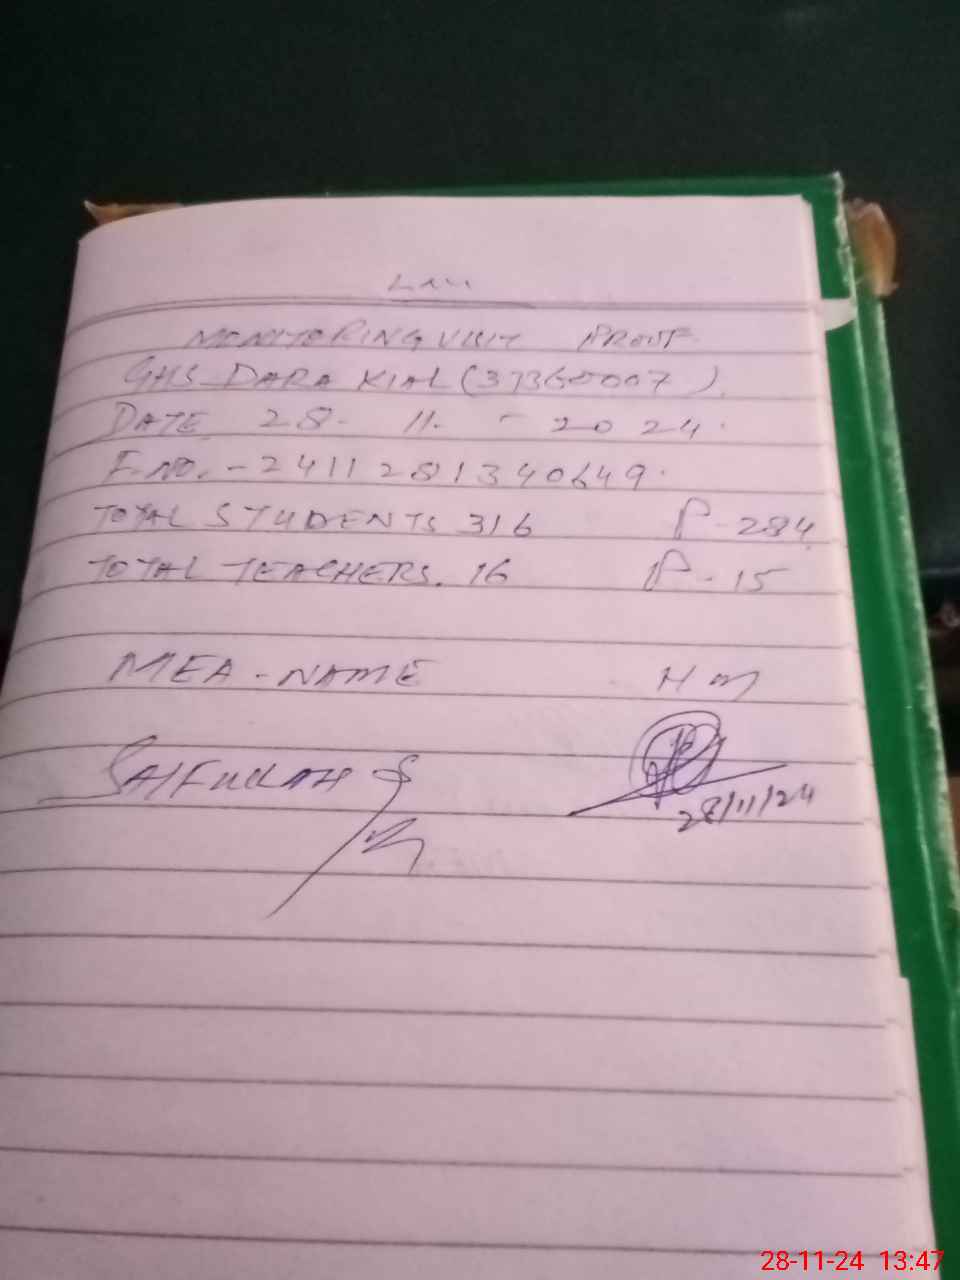 MONITORING VISIT PROOF
GHS DARA KIAL (37360007)
DATE 28-11.-2024.
F.NO.-2411281340649.
TOTAL STUDENTS 316 P-284
TOTAL TEACHERS. 16 P-15
MEA-NAME HM
SAIFULLAH
28/11/24
28-11-24 13:47